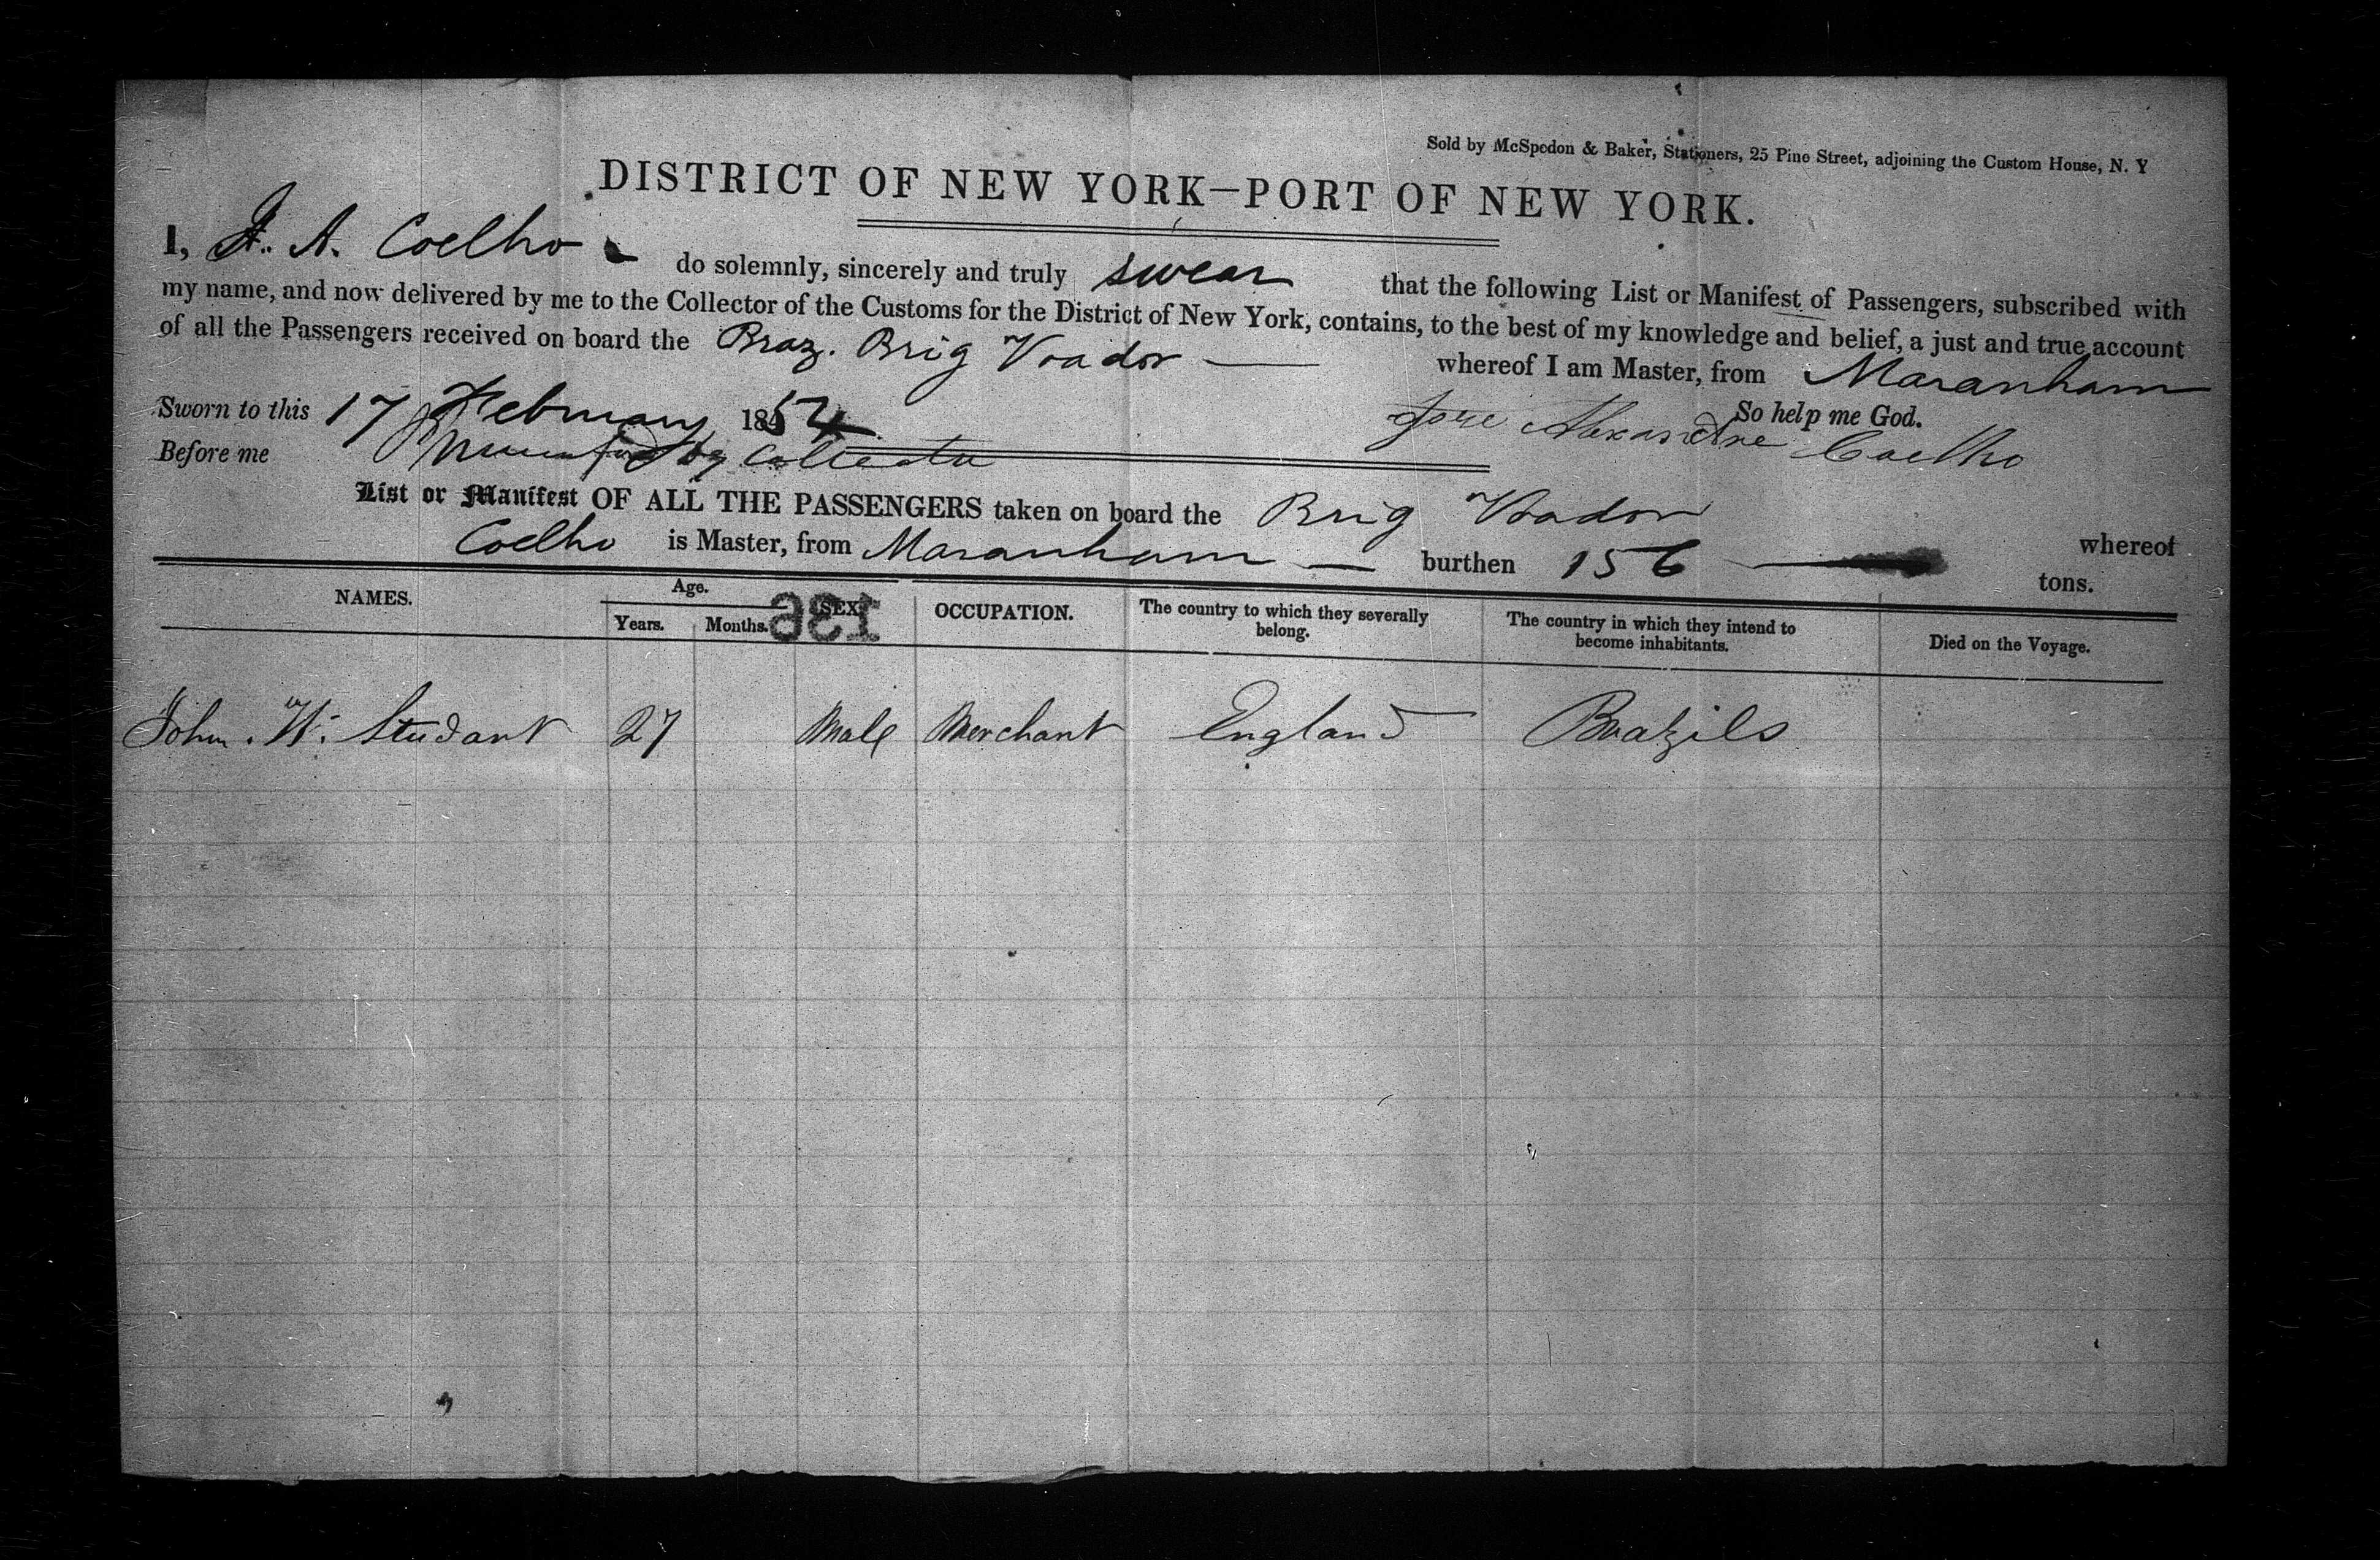 Sold by McSpedon & Baker, Stationers, 25 Pine Street, adjoining the Custom House, N. Y
DISTRICT OF NEW YORK—PORT OF NEW YORK.
I, J. A. Coelho do solemnly, sincerely and truly swear that the following List or Manifest of Passengers, subscribed with
my name, and now delivered by me to the Collector of the Customs for the District of New York, contains, to the best of my knowledge and belief, a just and true account
of all the Passengers received on board the Braz. Brig Voador whereof I am Master, from Maranham
Sworn to this 17 February 1854 So help me God.
Jose Alexandre Coelho
Before me Collector
List or Manifest OF ALL THE PASSENGERS taken on board the Brig Voador whereof
Coelho is Master, from Maranham — burthen 156 tons.
NAMES. Age. Years. Months. SEX. OCCUPATION. The country to which they severally belong. The country in which they intend to become inhabitants. Died on the Voyage.
136
John. W. Studart 27 Male Merchant England Brazils